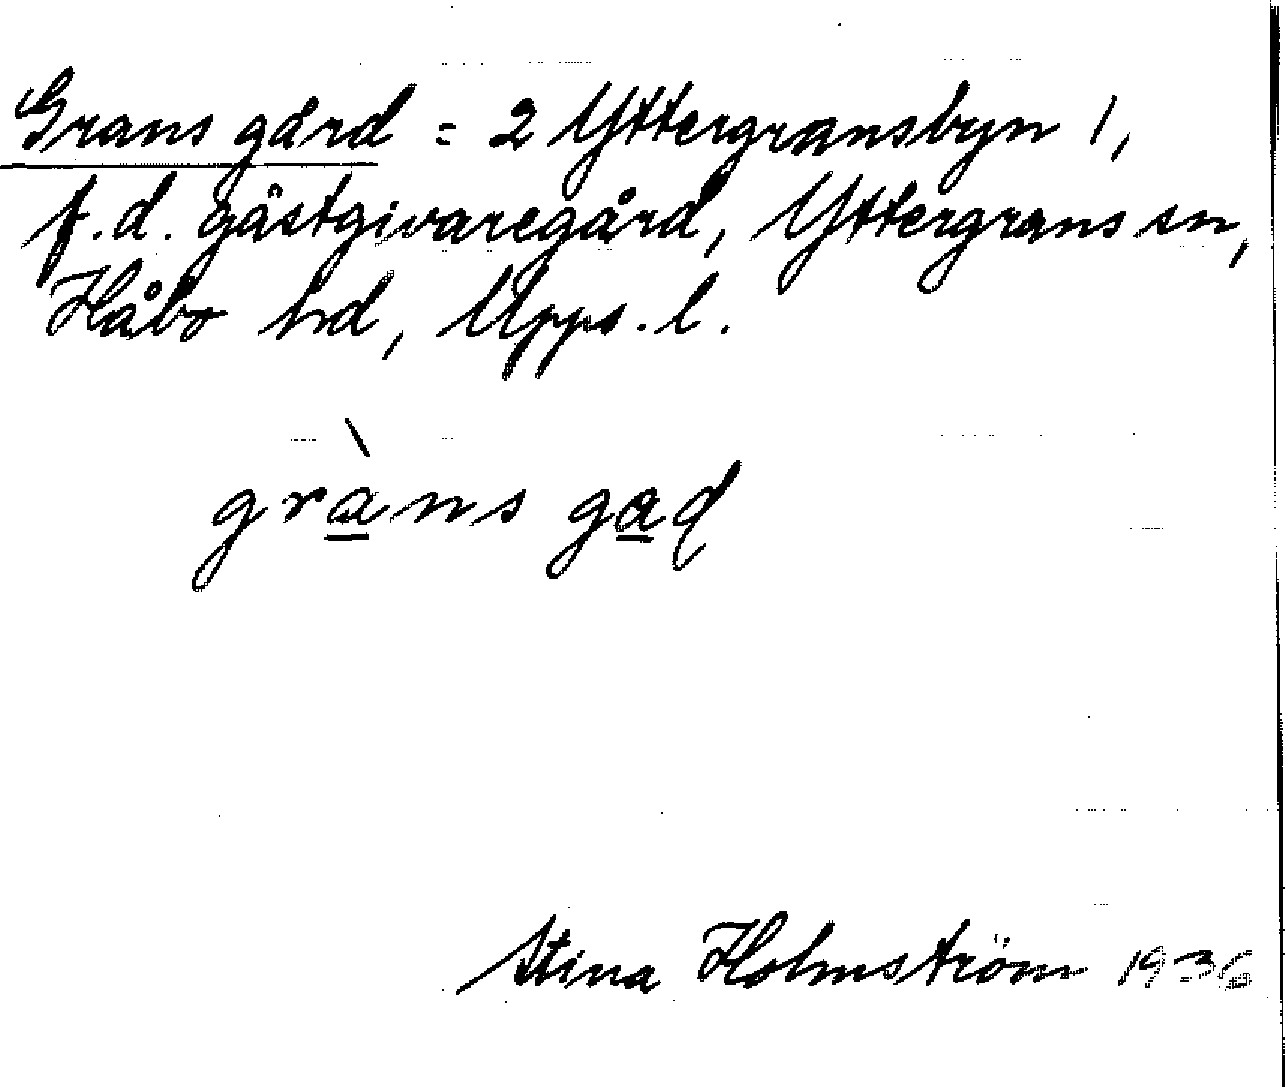 Grans gård = 2 Yttergransbyn 1,
f.d. gästgivaregård, Yttergrans sn,
Håbo hd, Upps. l.
gràns gaɖ
Stina Holmström 1936